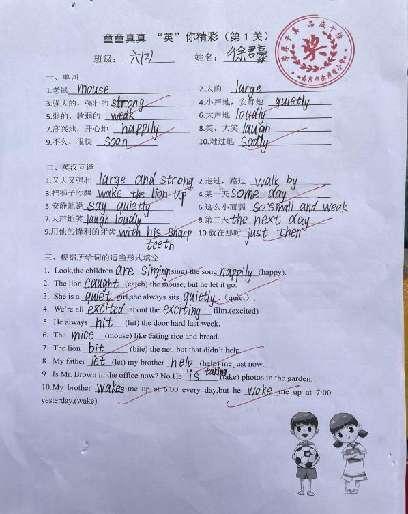 普普真真 “英”你精彩（第1关）
班级： 姓名：徐
一、单词
1.老鼠 mouse 2.大的 large
3.强大的，强壮的 strong 4.小声地，安静地 quietly
5.弱的，软弱的 weak 6.大声地 loudly
7.高兴地，开心地 happily 8.笑，大笑 laugh
9.不久，很快 soon 10.难过地 sadly
二、英汉互译
1.又大又强壮 large and strong 2.走过，路过 walk by
3.把狮子吵醒 wake the lion up 4.某一天 some day
5.安静地说 say quietly 6.这么小而弱 so small and weak
7.大声地笑 laugh loudly 8.第二天 the next day
9.用他的锋利的牙齿 with his sharp teeth 10.就在那时 just then
三、根据所给词的适当形式填空
1. Look,the children are singing(sing) the song happily (happy).
2. The lion caught (catch) the mouse, but he let it go.
3. She is a quiet girl,she always sits quietly (quiet).
4. We're all excited about the exciting film.(excited)
5. He always hit (hit) the door hard last week.
6. The mice (mouse) like eating rice and bread.
7. The lion bit (bite) the net, but that didn't help.
8. My father let (let) my brother help (help) me just now.
9. Is Mr. Brown in the office now? No.He is taking (take) photos in the garden.
10.My brother wakes me up at 6:00 every day,but he woke me up at 7:00
yesterday.(wake)